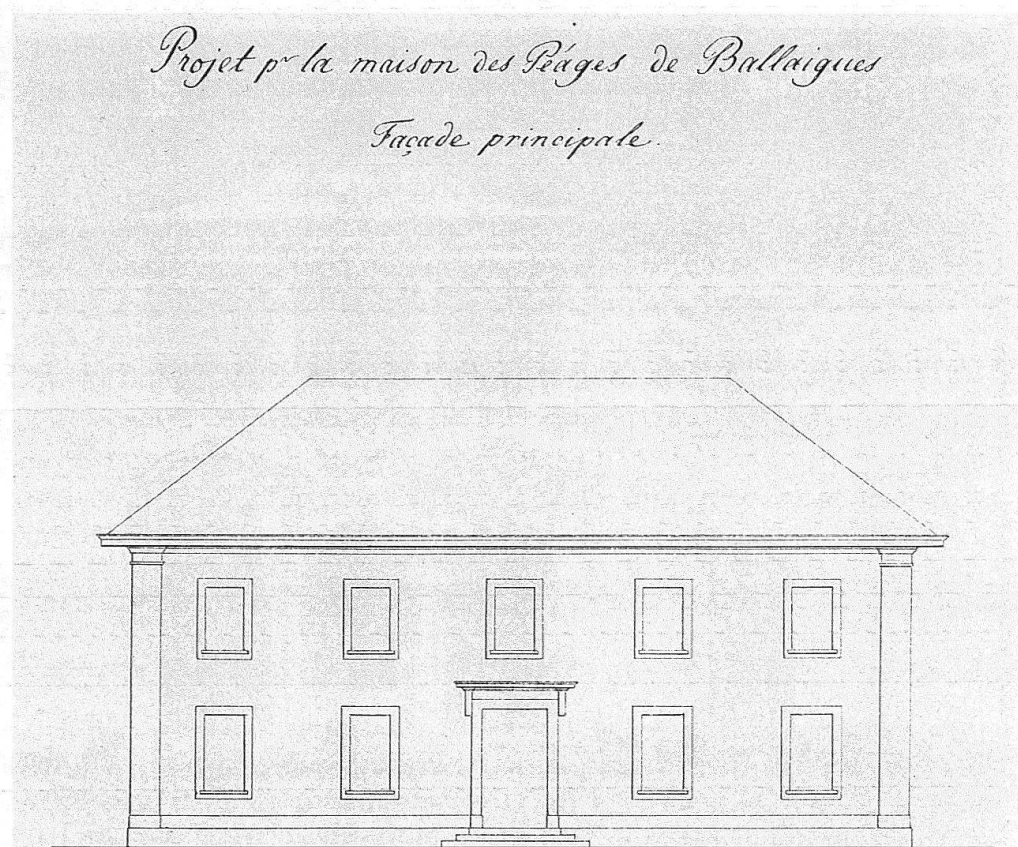 Projet pr la maison des Péages de Ballaigues
Façade principale.